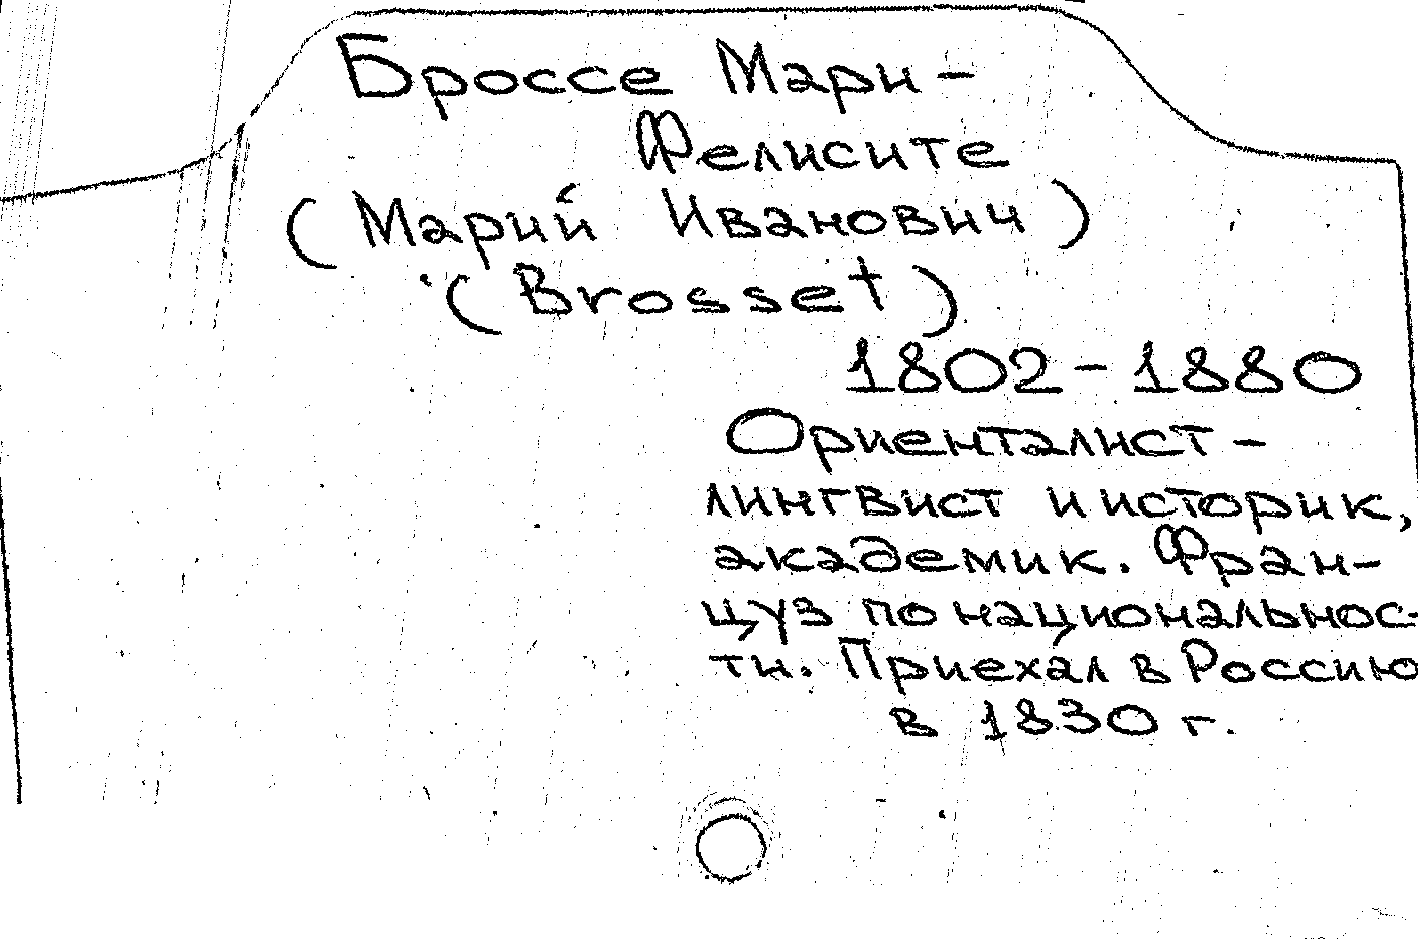 Броссе Мари-
Фелисите
(Марий Иванович)
(Brosset)
1802-1880
Ориенталист-
лингвист и историк,
академик. Фран-
цуз по националь­нос-
ти. Приехал в Россию
в 1830 г.